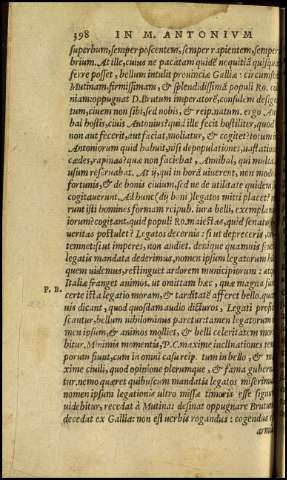 398 IN M. ANTONIVM
superbum, semper poscentem, semper rapientem, semper
brium. At ille, cuius ne pacatam quidē nequitiā quisquā
ferre posset, bellum intulit prouinciæ Galliæ: circumsedet
Mutinam, firmissimam, & splendidissimā populi Ro. co
niam: oppugnat D. Brutum imperatorē, consulem desig
tum, ciuem non sibi, sed nobis, & reip. natum. ergo An
bal hostis, ciuis Antonius? quid ille fecit hostiliter, quod
non aut fecerit, aut faciat, moliatur, & cogitet? totum
Antoniorum quid habuit, nisi depopulationes, uastationes
cædes, rapinas? quas non faciebat Annibal, qui multa
usum reseruabat. At ij, qui in horā uiuerent, non modo
fortunis, & de bonis ciuium, sed ne de utilitate quidem
cogitauerunt. Ad hunc (dij boni) legatos mitti placet?
runt isti homines formam reipub. iura belli, exempla
iorum? cogitant, quid populi Ro. maiestas, quid senatus
ueritas postulet? Legatos decernis: si ut deprecere,
temnet: si ut imperes, non audiet. denique quamuis
legatis mandata dederimus, nomen ipsum legatorum h
quem uidemus, restinguet ardorem municipiorum: atq
Italiæ franget animos. ut omittam hæc, quæ magna sunt
P. R. certe ista legatio moram, & tarditatē afferet bello. qua
uis dicant, quod quosdam audio dicturos, Legati profi
scantur, bellum nihilominus paretur: tamen legatorum
men ipsum, & animos molliet, & belli celeritatem mor
bitur. Minimis momentis, P. C. maximæ inclinationes tem
porum fiunt, cum in omni casu reip. tum in bello, & m
xime ciuili, quod opinione plerumque, & fama guberna
tur. nemo quæret quibuscum mandatis legatos miserimus
nomen ipsum legationis ultro missæ timoris esse signum
uidebitur, recedat à Mutina: desinat oppugnare Brutum
decedat ex Gallia: non est uerbis rogandus: cogendus
arma